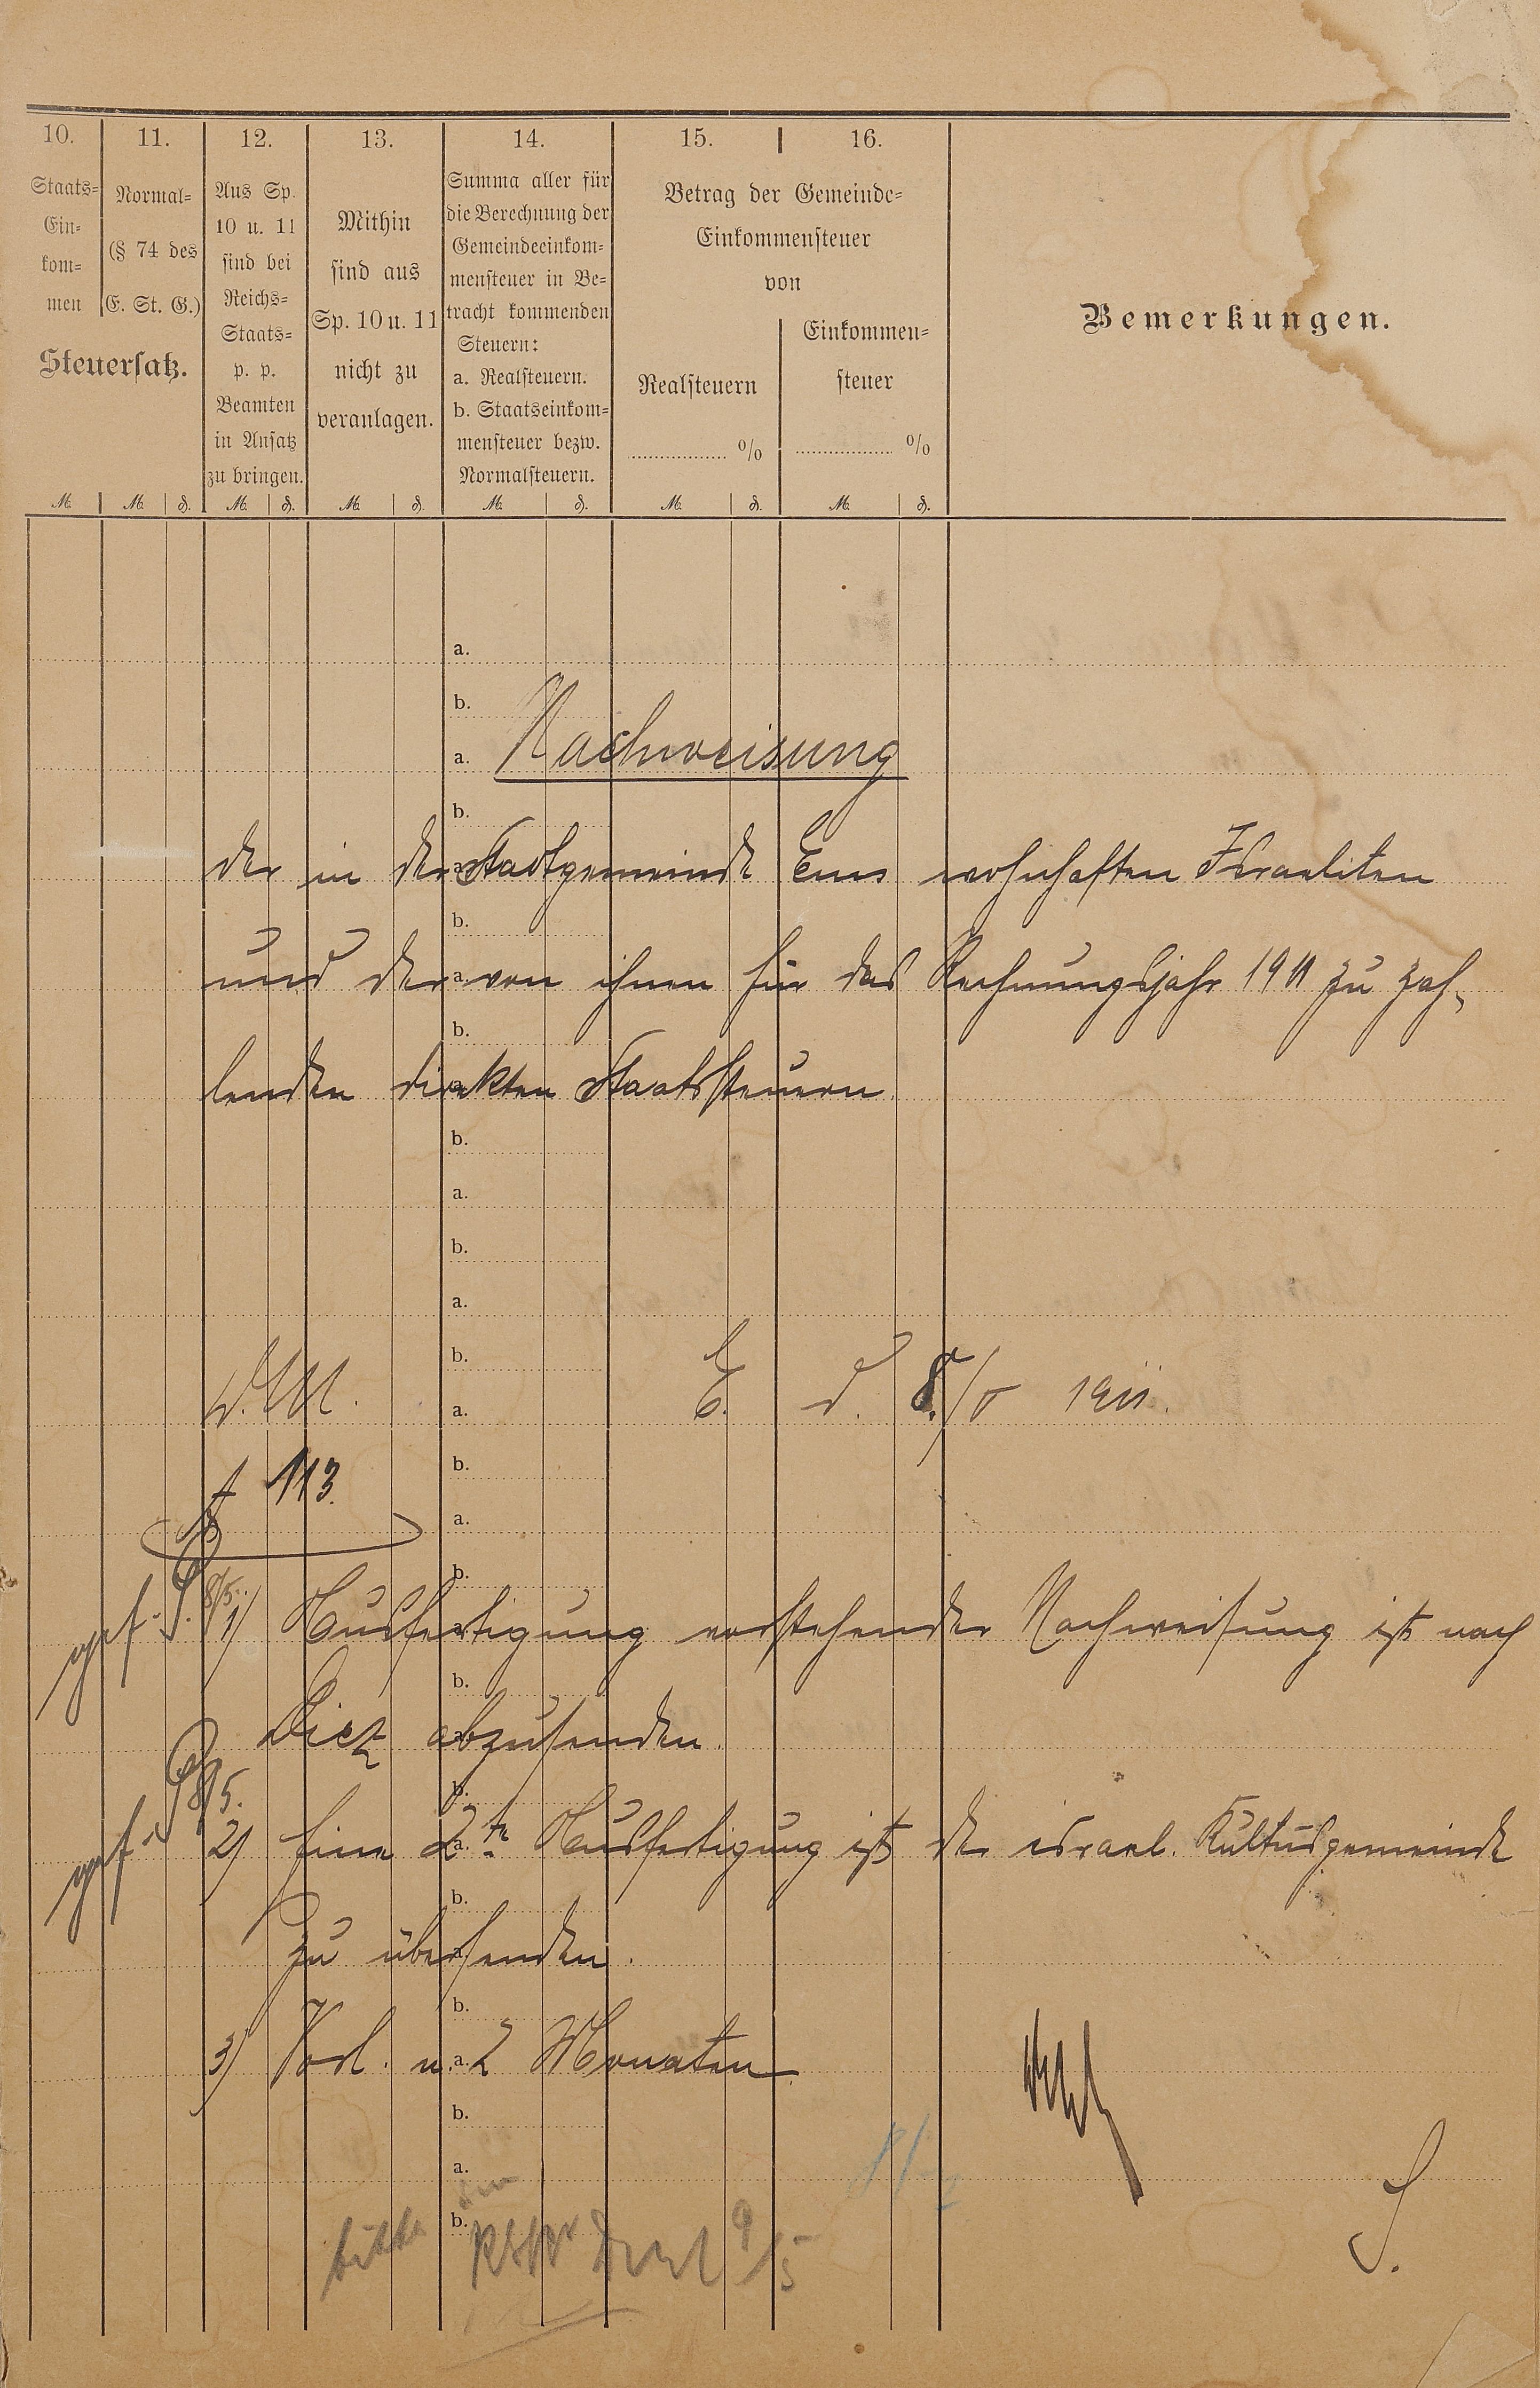 10. 11. 12. 13. 14. 15. 16.
Staats=
Ein=
kom=
men
Normal=
(§ 74 des
E. St. G.)
Steuersatz.
Aus Sp.
10 u. 11
sind bei
Reichs=
Staats=
p. p.
Beamten
in Ansatz
zu bringen.
Mithin
sind aus
Sp. 10 u. 11
nicht zu
veranlagen.
Summa aller für
die Berechnung der
Gemeindeeinkom=
mensteuer in Be=
tracht kommenden
Steuern:
a. Realsteuern.
b. Staatseinkom=
mensteuer bezw.
Normalsteuern.
Betrag der Gemeinde=
Einkommensteuer
von
Realsteuern
%
Einkommen=
steuer
%
Bemerkungen.
M. M. ₰. M. ₰. M. ₰. M. ₰. M. ₰. M. ₰.
a.
b.
a. Nachweisung
b.
der in der Stadtgemeinde Ems wohnhaften Israeliten
b.
und der a. von ihnen für das Rechnungsjahr 1911 zu zah-
b.
lenden direkten Staatssteuern.
b.
a.
b.
a.
b.
D. M. a. E. d. 8./5 1911.
b.
113.
a.
b.
gef. S. 8/5. 1) Ausfertigung vorstehender Nachweisung ist nach
b.
Diez abzusenden.
b.
gef. 8/5. 2) Eine a. 2te Ausfertigung ist der israel. Kultusgemeinde
b.
zu übersenden.
b.
3) Vorl. n. a. 2 Monaten
b.
a.
b.
9/5
S.